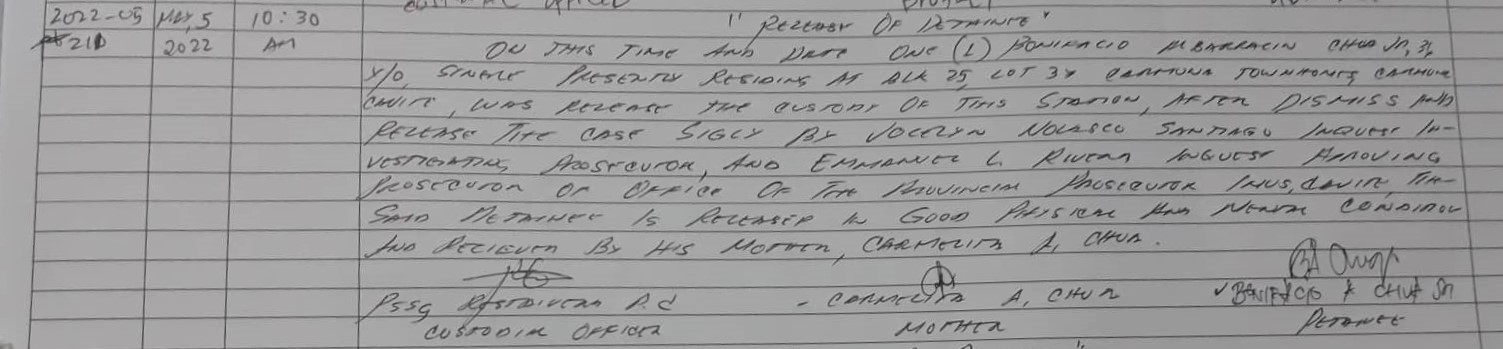 2022-05 MAY, 5 10:30 "RELEASE OF DETAINEE"
21D 2022 AM ON THIS TIME AND DATE ONE (1) BONIFACIO ABARRACIN CHUA JR,
Y/O, SINGLE PRESENTLY RESIDING AT BLK 25, LOT 34 CARMONA TOWNHOMES CARMONA
CAVITE, WAS RELEASE THE CUSTODY OF THIS STATION, AFTER DISMISS AND
RELEASE THE CASE BY JOCELYN NOLASCO SANTIAGO INQUEST IN-
VESTIGATING PROSECUTOR, AND EMMANUEL L. RIVERA INQUEST APROVING
PROSECUTOR OF OFFICE OF THE PROVINCIAL PROSECUTOR IMUS, CAVITE, THE
SAID DETAINEE IS RELEASED IN GOOD PHYSICAL AND MENTAL CONDITION
AND RECIEVED BY HIS MOTHER, CARMELITA A, CHUA.
PSSG P.C - CARMELITA A, CHUA BONIFACIO A CHUA JR
CUSTODIAL OFFICER MOTHER DETAINEE